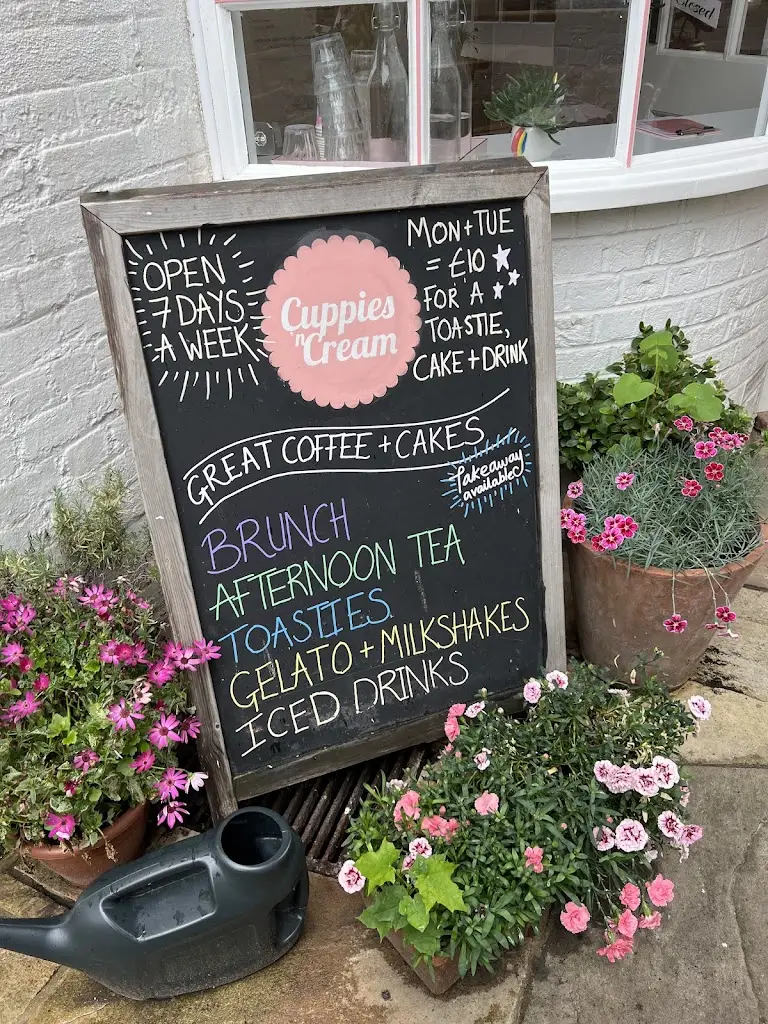 Closed
OPEN
7 DAYS
A WEEK
Cuppies
'n Cream
MON+TUE
= £10
FOR A
TOASTIE,
CAKE + DRINK
GREAT COFFEE + CAKES
Takeaway
available!
BRUNCH
AFTERNOON TEA
TOASTIES
GELATO + MILKSHAKES
ICED DRINKS